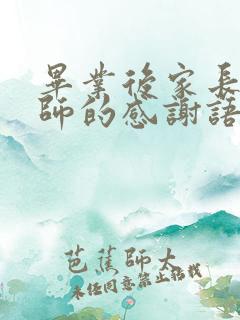 畢業後家長
師的感謝語
芭蕉師太
未经同意禁止搭載